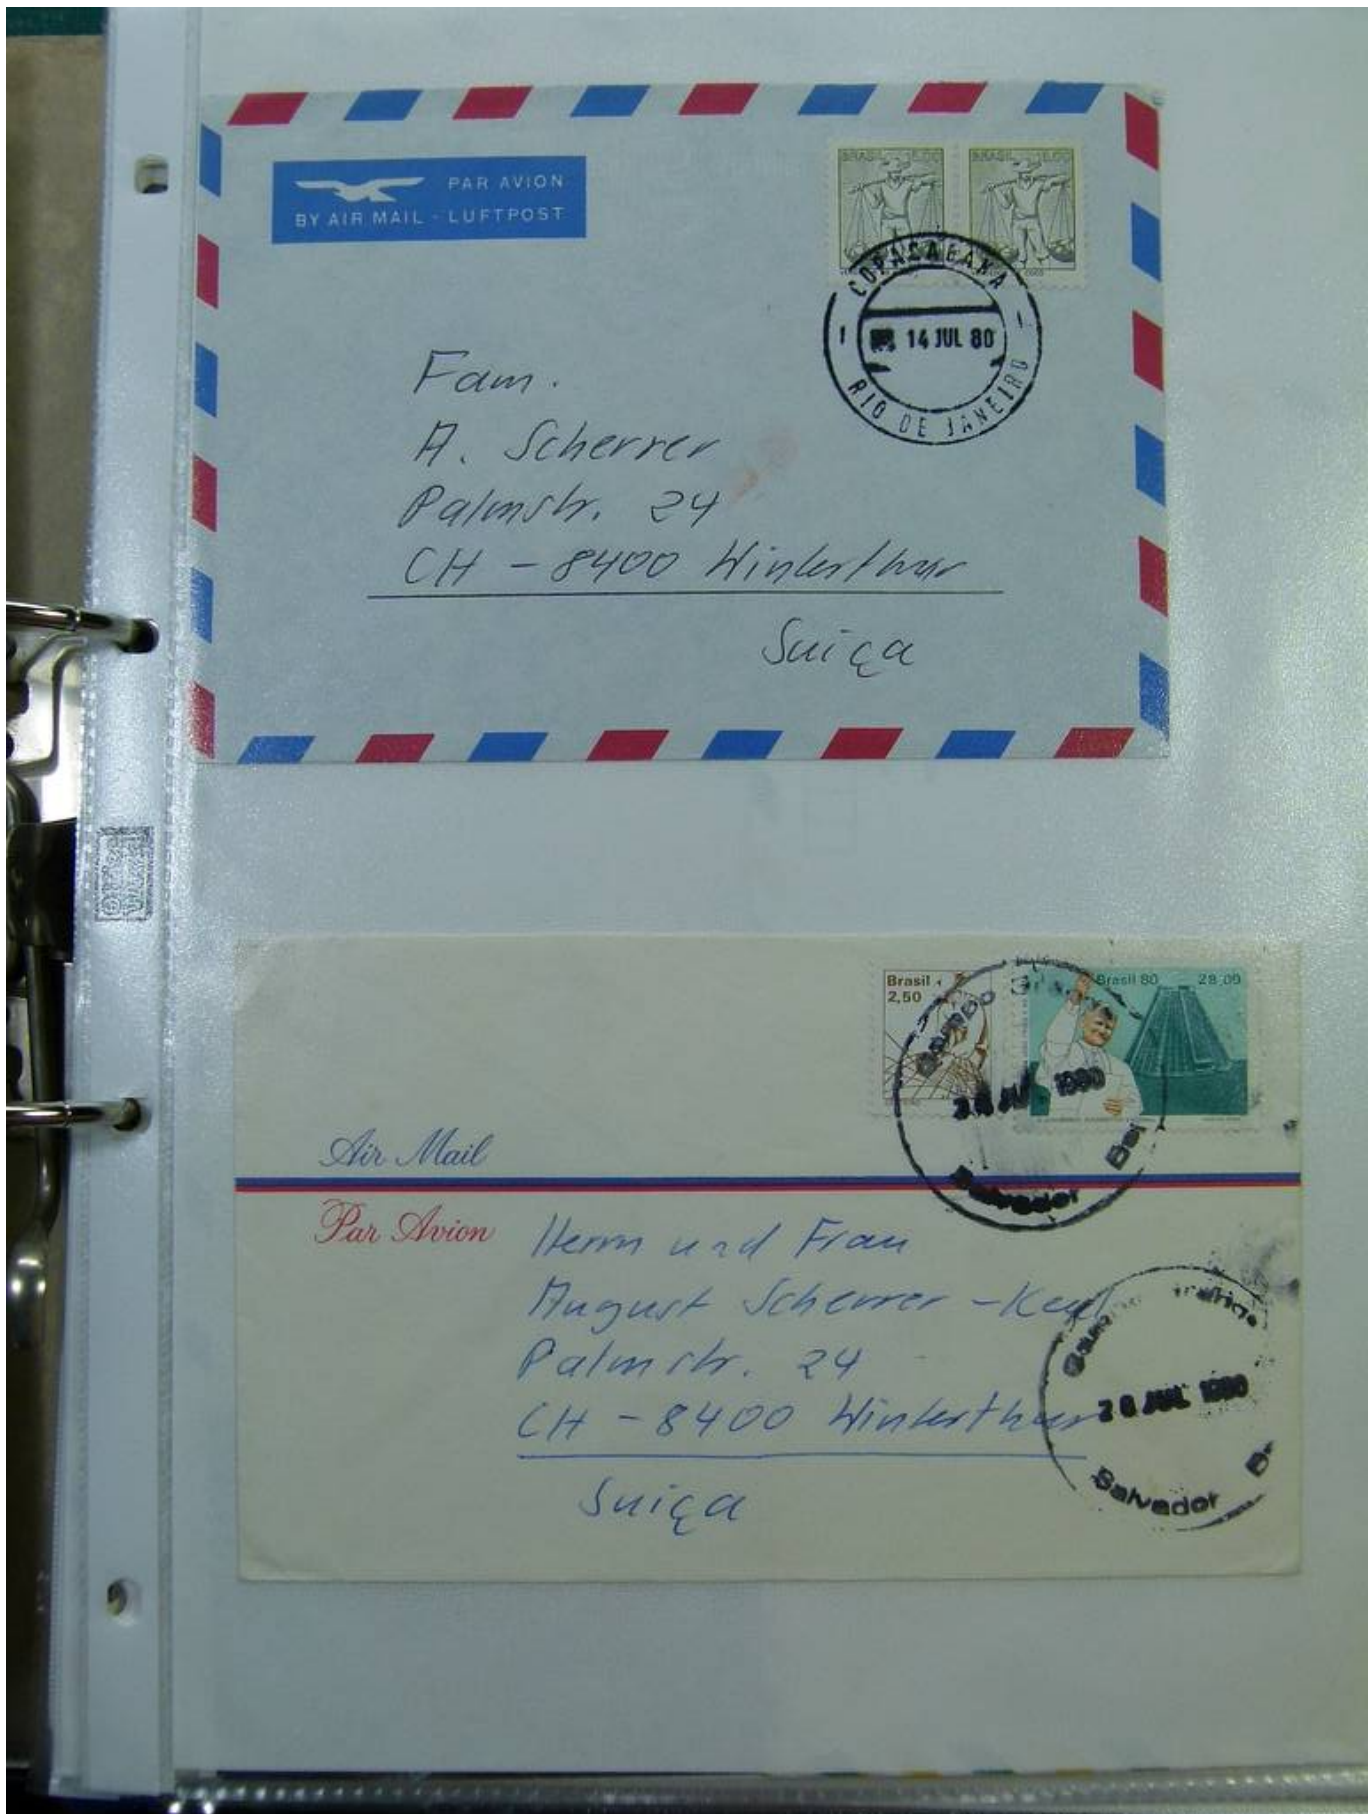 PAR AVION
BY AIR MAIL - LUFTPOST
BRASIL
BRASIL
COPACABANA
14 JUL 80
RIO DE JANEIRO
Fam.
A. Scherrer
Palmstr. 24
CH - 8400 Winterthur
Suiça
Brasil
2,50
Brasil 80 28,00
1980
Salvador
Air Mail
Par Avion
Herrn und Frau
August Scherrer -
Palmstr. 24
CH - 8400 Winterthur
Suiça
JUL 1980
Salvador